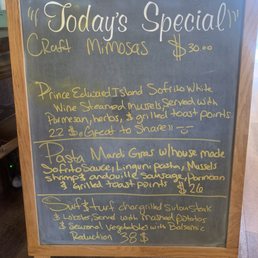 "Today's Special"
Craft Mimosas $30.00
Prince Edward Island Sofrito White
Wine Steamed Mussels, Served with
Parmesan, herbs, & grilled toast points
22 $. Great to Share!!
Pasta Mardi Gras w/ house made
Sofrito Sauce, Linguni pasta, Mussels
shrimp & andouille Sausage, Parmesan
& Grilled toast points $26
Surf & turf chargrilled Sirloin steak
& Lobster, Served with mashed potatos
& Seasonal Vegetables with Balsamic
Reduction 38$